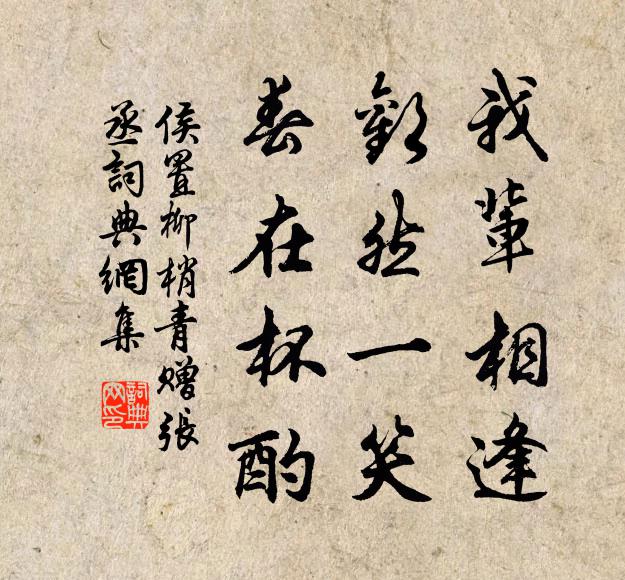 我輩相逢
歡然一笑
春在杯酌
侯置柳梢青贈張
丞詞典網集
詞典
网印